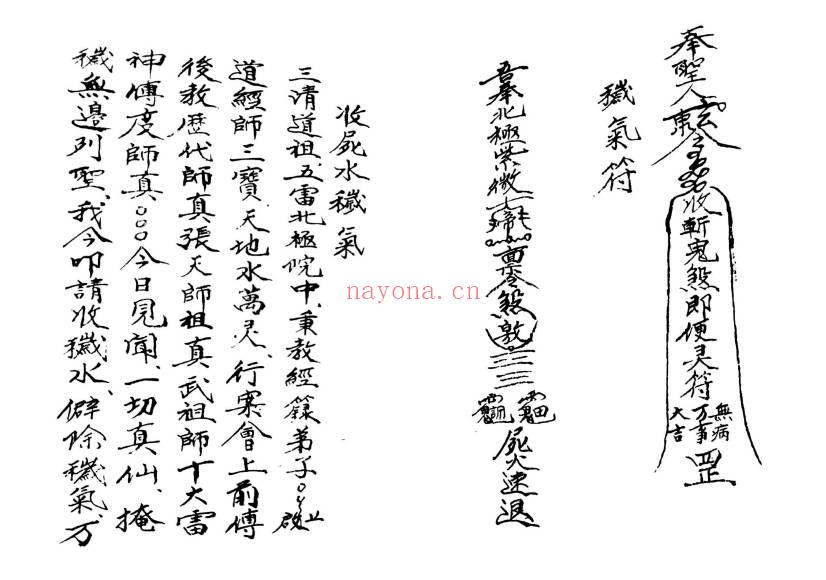 奉聖人
收斬鬼煞即便灵符
無病
万事
大吉
罡
穢氣符
吾奉北極紫微
煞
屍火速退
收屍水穢氣
三清道祖、五雷北極院中、秉教經籙弟子
啟上
道經師三寶天地水萬灵、行案會上前傳
後教歷代師真張天師祖真武祖師十大雷
神傳度師真○○○今日見聞、一切真仙、掩
穢無邊列聖、我今叩請收穢水、僻除穢氣、万
nayona.cn